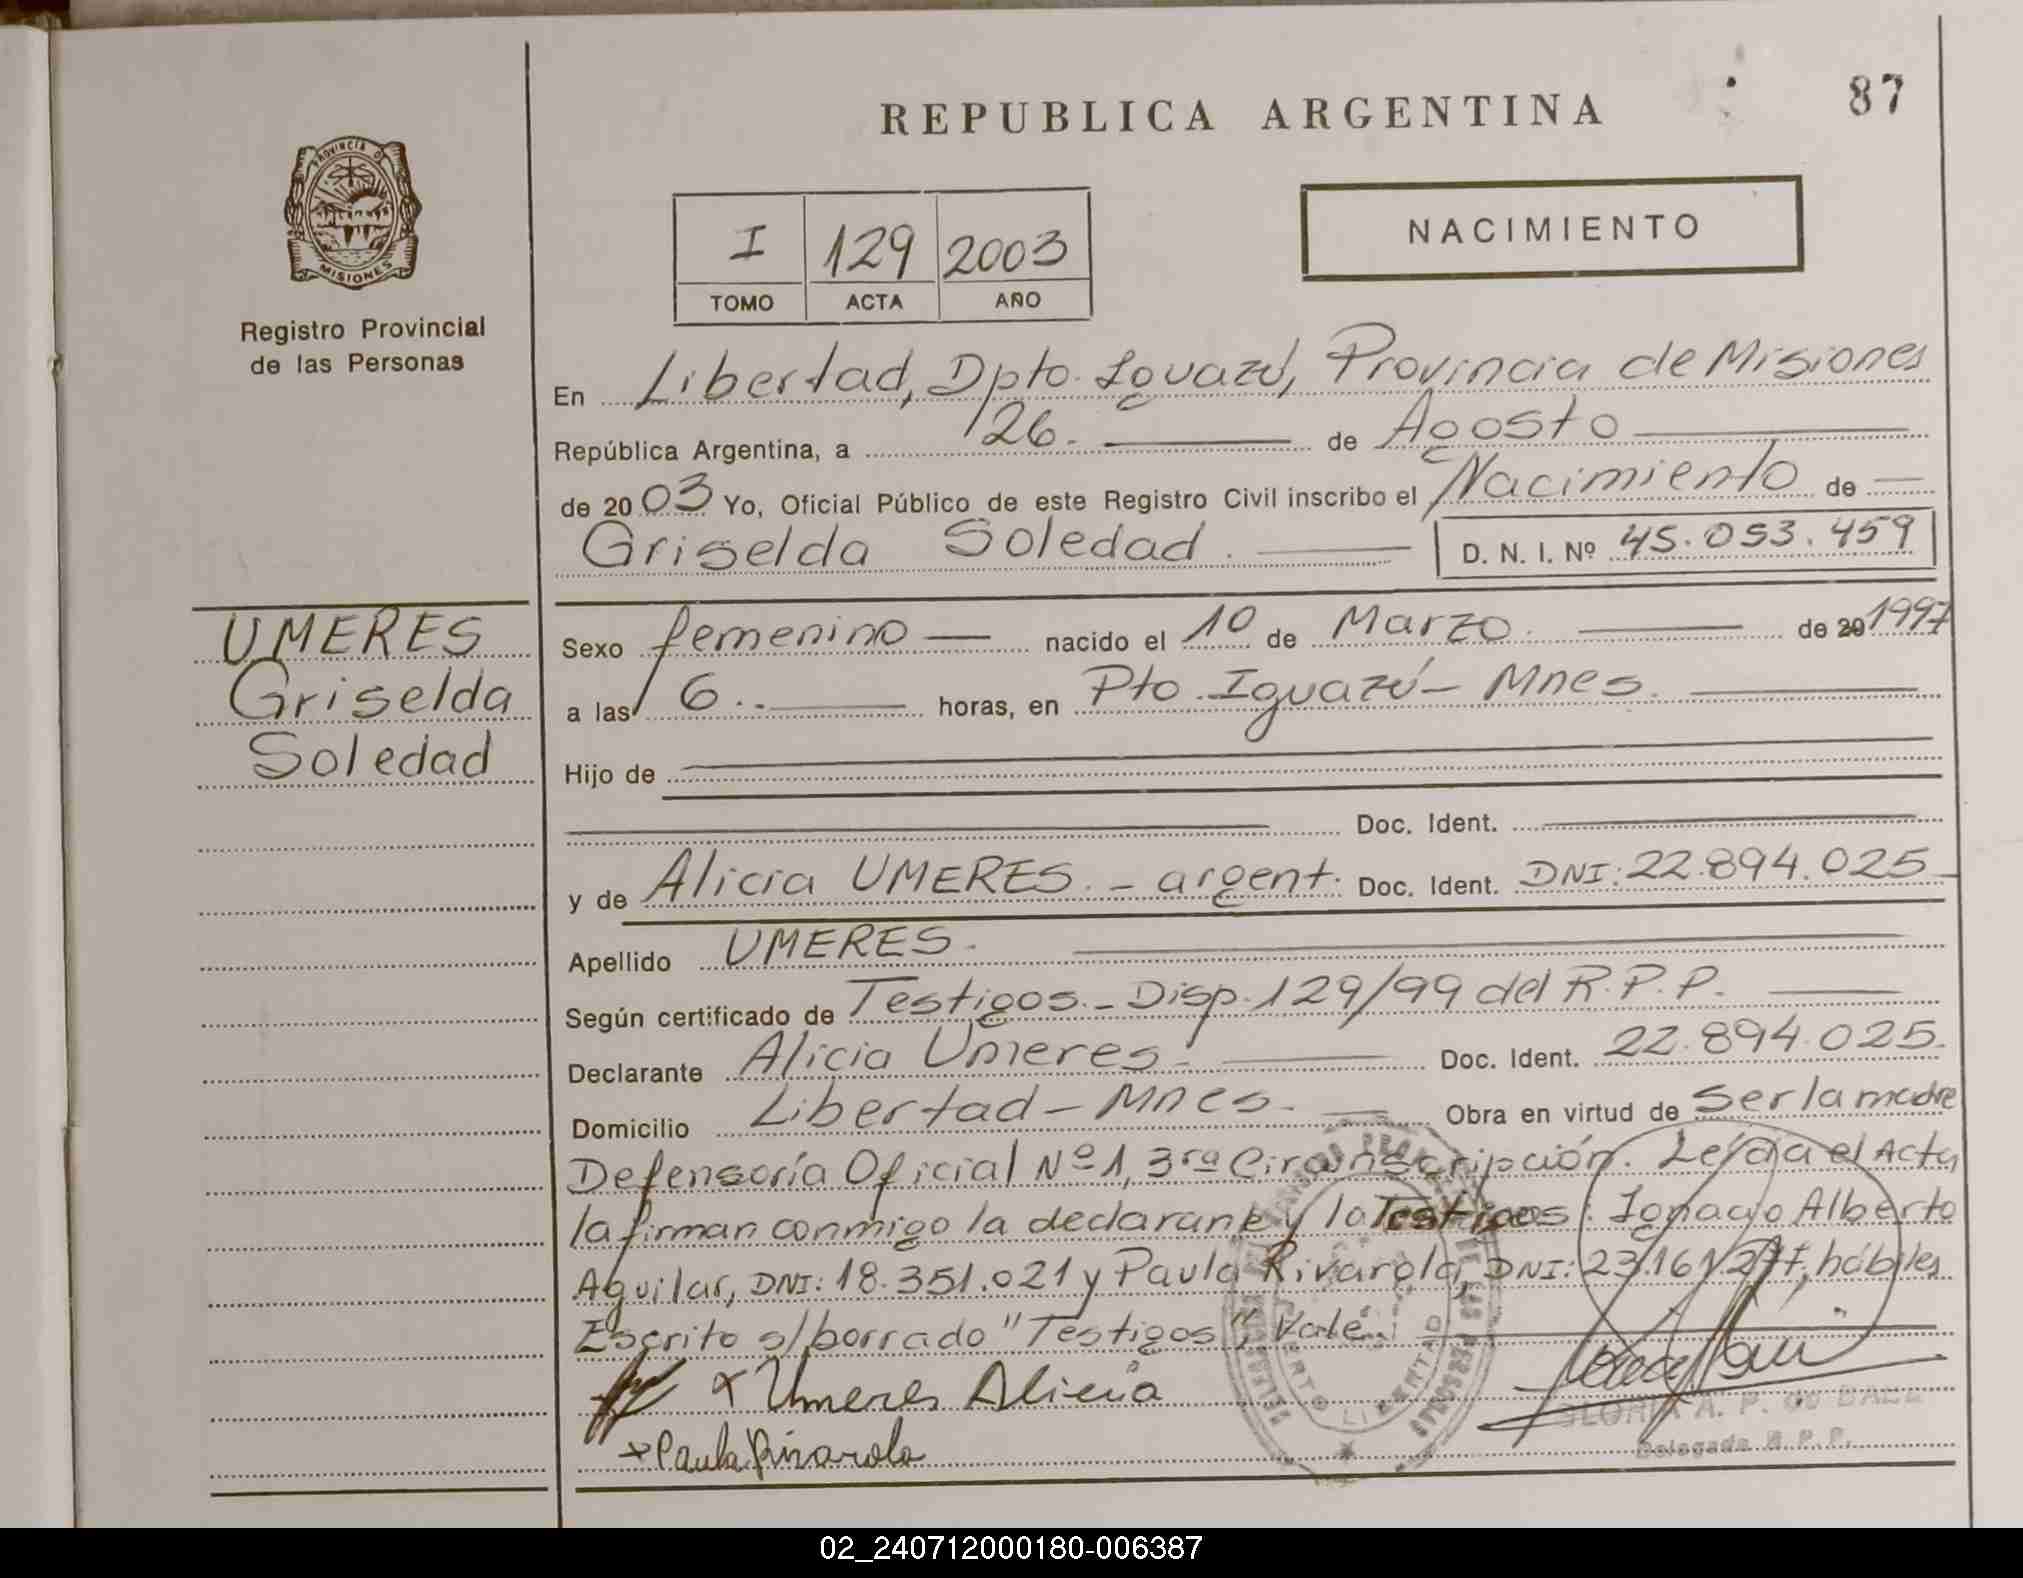 REPUBLICA ARGENTINA
87
PROVINCIA DE
MISIONES
Registro Provincial
de las Personas
I 129 2003
TOMO ACTA AÑO
NACIMIENTO
En Libertad, Dpto. Iguazú, Provincia de Misiones
República Argentina, a 26. de Agosto
de 2003 Yo, Oficial Público de este Registro Civil inscribo el Nacimiento de
Griselda Soledad. D. N. I. Nº 45.053.459
UMERES
Griselda
Soledad
Sexo femenino nacido el 10 de Marzo. de 20 1997
a las 6. horas, en Pto. Iguazú - Mnes.
Hijo de
Doc. Ident.
y de Alicia UMERES. - argent. Doc. Ident. DNI: 22.894.025
Apellido UMERES.
Según certificado de Testigos. - Disp. 129/99 del R.P.P.
Declarante Alicia Umeres. Doc. Ident. 22.894.025.
Domicilio Libertad - Mnes. Obra en virtud de Ser la madre
Defensoría Oficial Nº 1, 3ra Circunscripción. Leída el Acta
la firman conmigo la declarante y lo Testigos: Ignacio Alberto
Aguilar, DNI: 18.351.021 y Paula Rivarola, DNI: 23.161.277, hábiles
Escrito s/borrado "Testigos", Vale.
x Umeres Alicia
x Paula Rivarola
PUERTO LIBERTAD
GLORIA A. P. de
Delegada R.P.P.
02_240712000180-006387